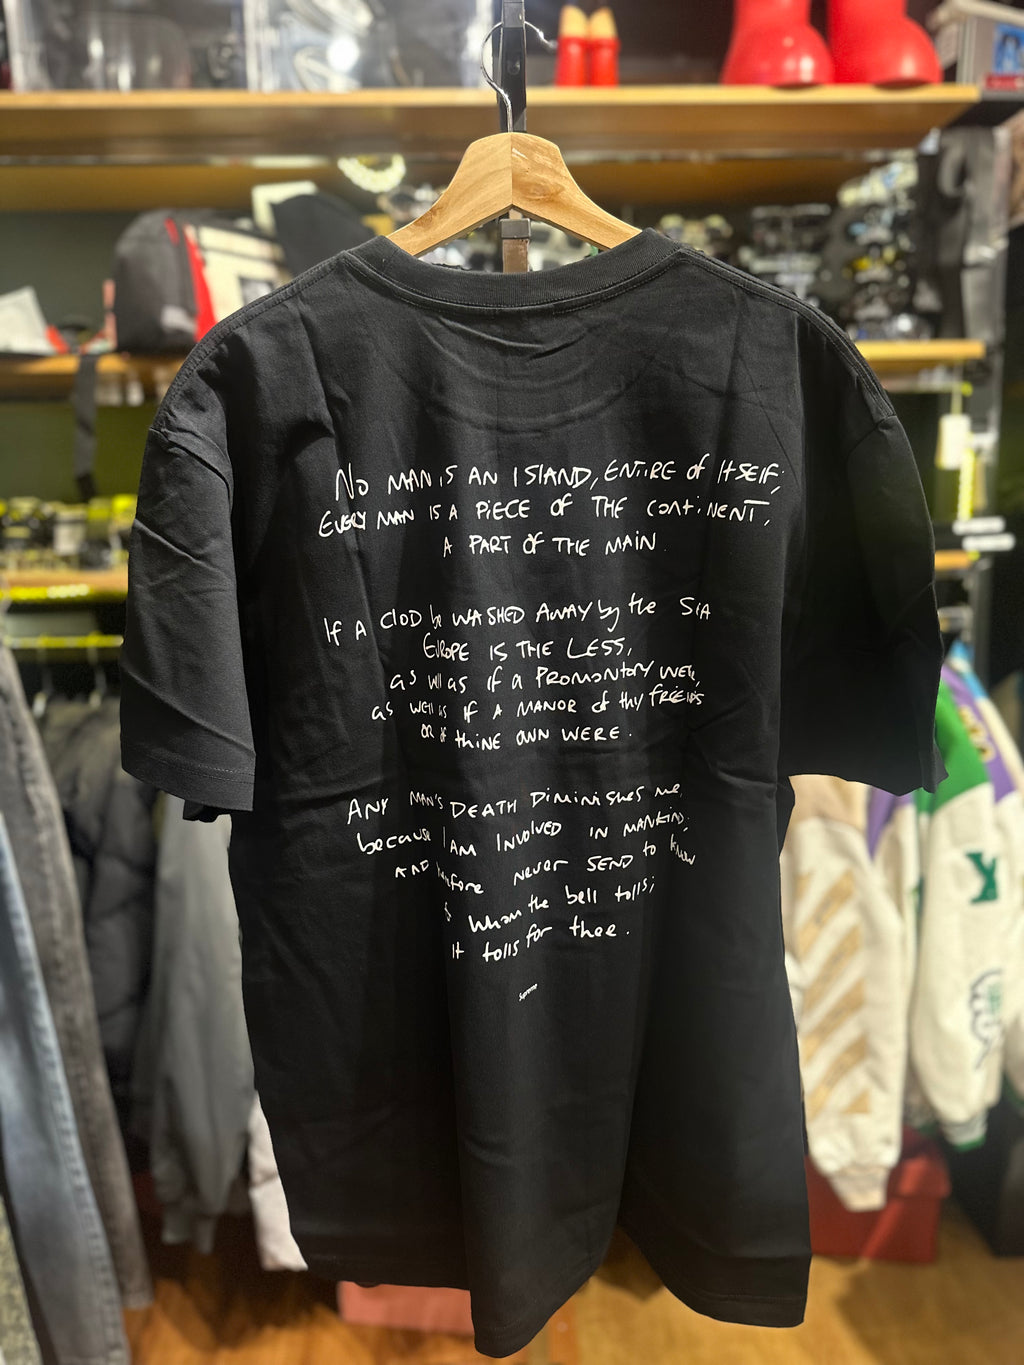 No MAN IS AN ISLAND, ENTIRE of ItSELF;
EVERY MAN IS A PIECE OF THE CONtiNENT,
A PART OF THE MAIN.
If A clOD be WASHED AWAY by the SEA
EUROPE IS THE LESS,
as well as if a PROMONtORY WERE,
as well as if A MANOR of thy FRIENDS
OR of thine OWN WERE.
ANY MAN'S DEATH Diminishes me,
because I AM INVOLVED IN MANKIND;
AND therefore never SEND to know
for whom the bell tolls;
It tolls for thee.
Supreme